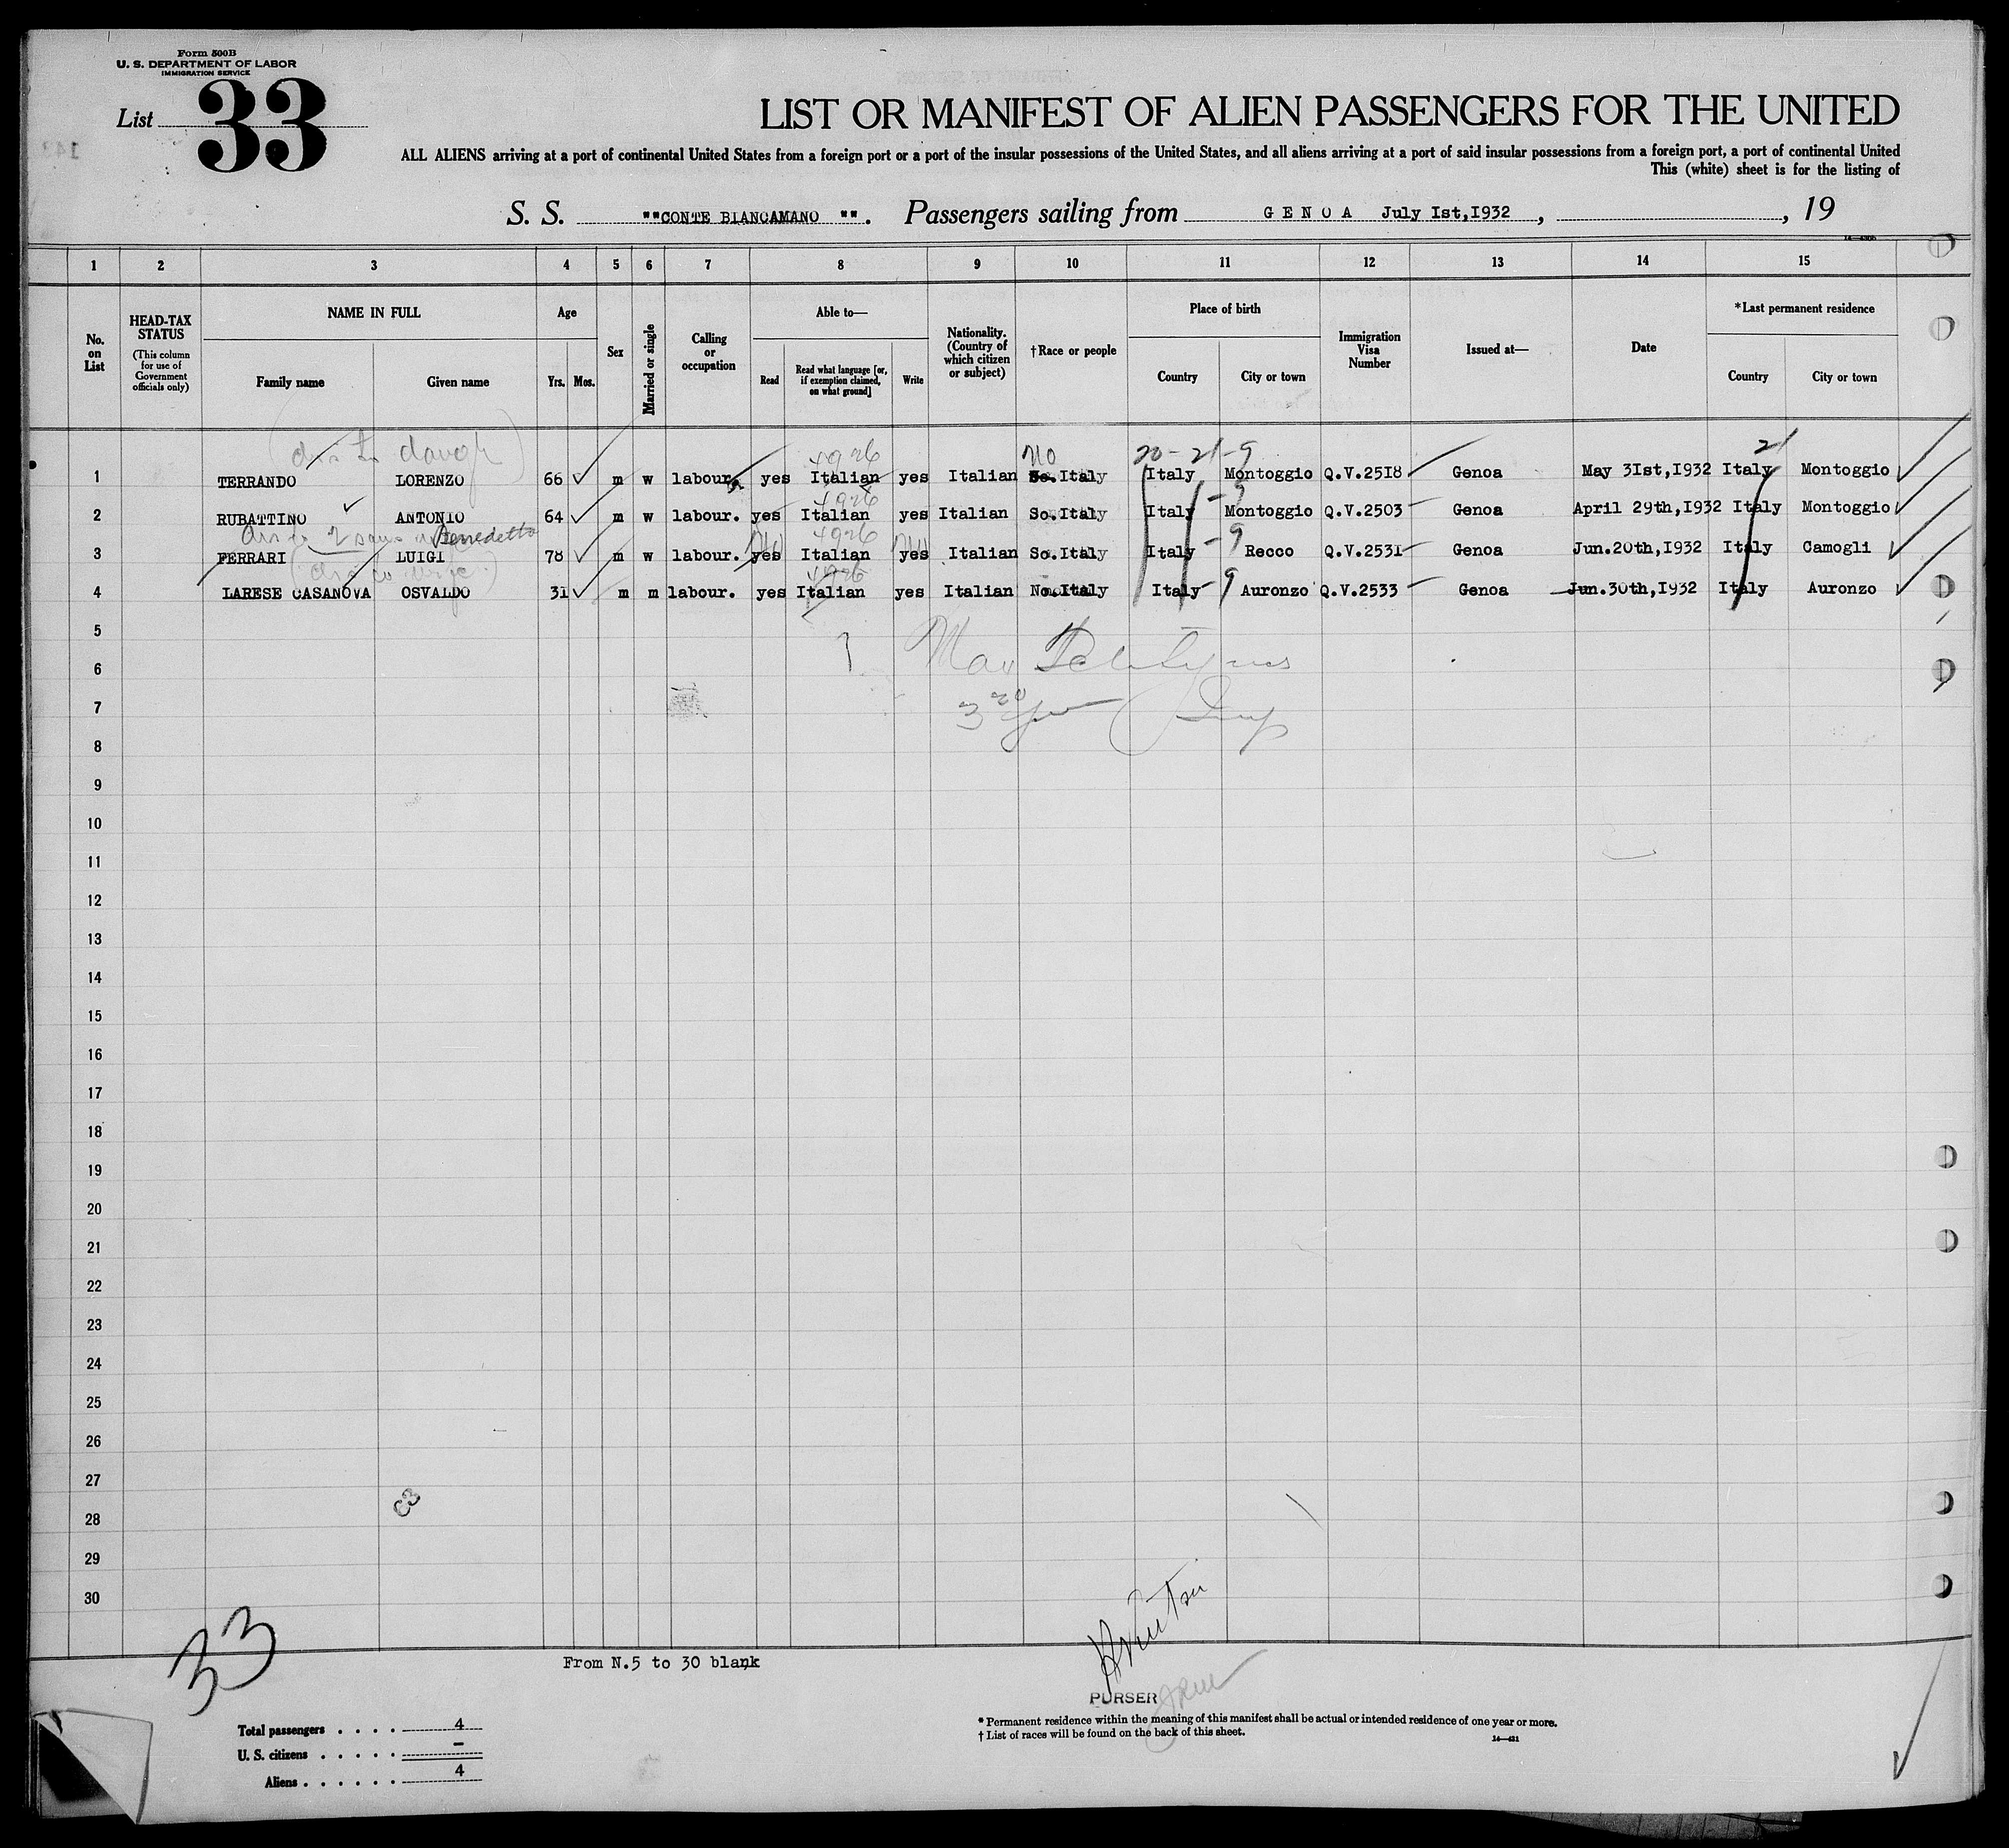 Form 500B
U. S. DEPARTMENT OF LABOR
IMMIGRATION SERVICE
List 33
LIST OR MANIFEST OF ALIEN PASSENGERS FOR THE UNITED
ALL ALIENS arriving at a port of continental United States from a foreign port or a port of the insular possessions of the United States, and all aliens arriving at a port of said insular possessions from a foreign port, a port of continental United
This (white) sheet is for the listing of
S. S. ""CONTE BIANCAMANO "". Passengers sailing from GENOA July Ist,I932, , 19
1 2 3 4 5 6 7 8 9 10 11 12 13 14 15
No. on List
HEAD-TAX STATUS
(This column for use of Government officials only)
NAME IN FULL
Family name Given name
Age
Yrs. Mos.
Sex
Married or single
Calling or occupation
Able to—
Read
Read what language [or, if exemption claimed, on what ground]
Write
Nationality. (Country of which citizen or subject)
†Race or people
Place of birth
Country City or town
Immigration Visa Number
Issued at—
Date
*Last permanent residence
Country City or town
no 20-21-9 21
1 TERRANDO LORENZO 66 m w labour. yes Italian yes Italian So.Italy Italy Montoggio Q.V.25I8 Genoa May 3Ist,I932 Italy Montoggio
2 RUBATTINO ANTONIO 64 m w labour. yes Italian yes Italian So.Italy Italy -9 Montoggio Q.V.2503 Genoa April 29th,I932 Italy Montoggio
Benedetto
3 FERRARI LUIGI 78 m w labour. yes Italian yes Italian So.Italy Italy -9 Recco Q.V.253I Genoa Jun.20th,I932 Italy Camogli
4 LARESE CASANOVA OSVALDO 3I m m labour. yes Italian yes Italian No.Italy Italy -9 Auronzo Q.V.2533 Genoa Jun.30th,I932 Italy Auronzo
5
6
7
8
9
10
11
12
13
14
15
16
17
18
19
20
21
22
23
24
25
26
27
28
29
30
33
From N.5 to 30 blank
PURSER
Total passengers . . . . 4
U. S. citizens . . . . . –
Aliens . . . . . . 4
* Permanent residence within the meaning of this manifest shall be actual or intended residence of one year or more.
† List of races will be found on the back of this sheet.